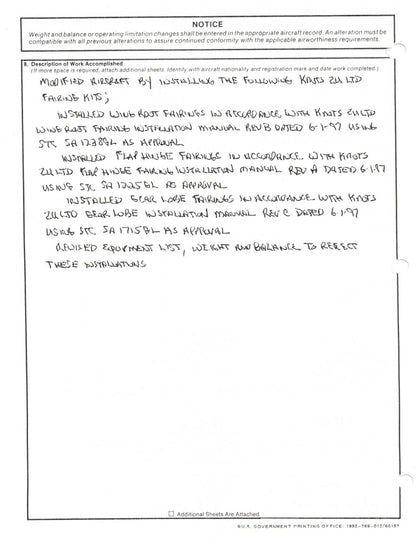 NOTICE
Weight and balance or operating limitation changes shall be entered in the appropriate aircraft record. An alteration must be
compatible with all previous alterations to assure continued conformity with the applicable airworthiness requirements.
8. Description of Work Accomplished
(If more space is required, attach additional sheets. Identify with aircraft nationality and registration mark and date work completed.)
MODIFIED AIRCRAFT BY INSTALLING THE FOLLOWING KNOTS 2U LTD
FAIRING KITS;
INSTALLED WING ROOT FAIRINGS IN ACCORDANCE WITH KNOTS 2U LTD
WING ROOT FAIRING INSTALLATION MANUAL REV B DATED 6-1-97 USING
STC SA 1238GL AS APPROVAL
INSTALLED FLAP HINGE FAIRINGS IN ACCORDANCE WITH KNOTS
2U LTD FLAP HINGE FAIRING INSTALLATION MANUAL REV A DATED 6-1-97
USING STC SA 1225GL AS APPROVAL
INSTALLED GEAR LOBE FAIRINGS IN ACCORDANCE WITH KNOTS
2U LTD GEAR LOBE INSTALLATION MANUAL REV C DATED 6-1-97
USING STC SA 1715GL AS APPROVAL
REVISED EQUIPMENT LIST, WEIGHT AND BALANCE TO REFLECT
THESE INSTALLATIONS
Additional Sheets Are Attached
U.S. GOVERNMENT PRINTING OFFICE: